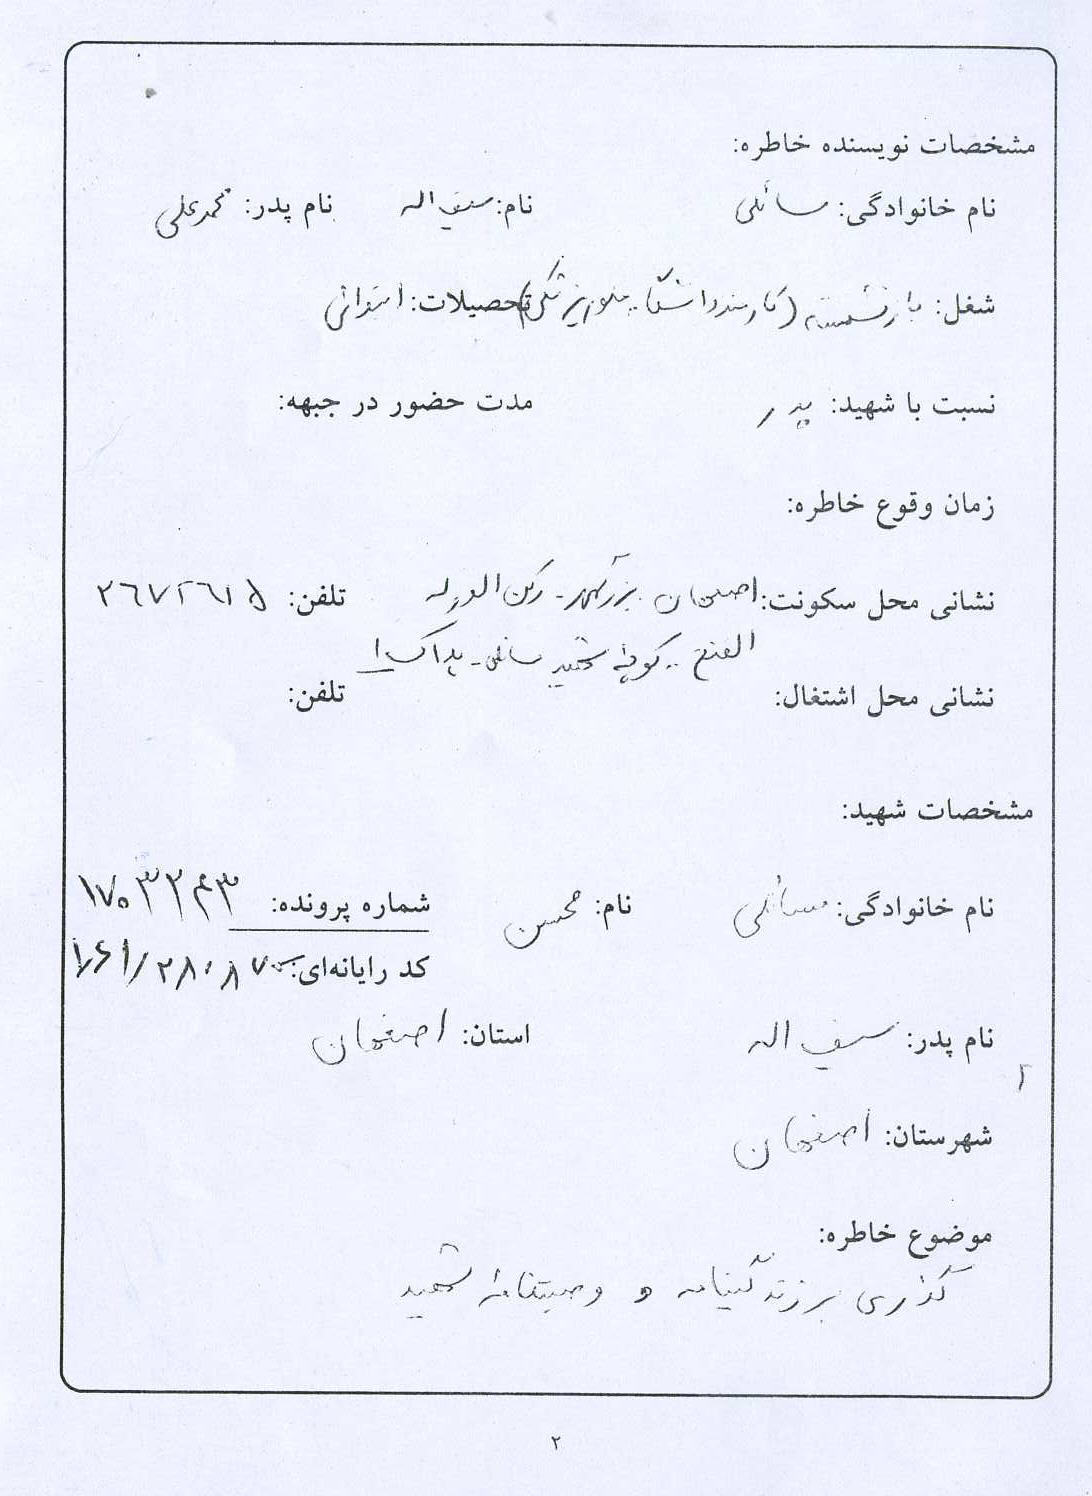 مشخصات نویسنده خاطره:
نام خانوادگی: سائلی نام: سیف اله نام پدر: محمدعلی
شغل: بازنشسته (کارمند دانشگاه علوم پزشکی) تحصیلات: ابتدائی
نسبت با شهید: پدر مدت حضور در جبهه:
زمان وقوع خاطره:
نشانی محل سکونت: اصفهان - بزرگمهر - رکن الدوله تلفن: ۲۶۷۲۶۱۵
الفتح - کوچه شهید سائلی - پلاک ۱
نشانی محل اشتغال: تلفن:
مشخصات شهید:
نام خانوادگی: سائلی نام: محسن شماره پرونده: ۱۷۰۳۲۴۳
کد رایانه‌ای:
نام پدر: سیف اله استان: اصفهان
شهرستان: اصفهان
موضوع خاطره:
گذری بر زندگینامه و وصیتنامه شهید
۲